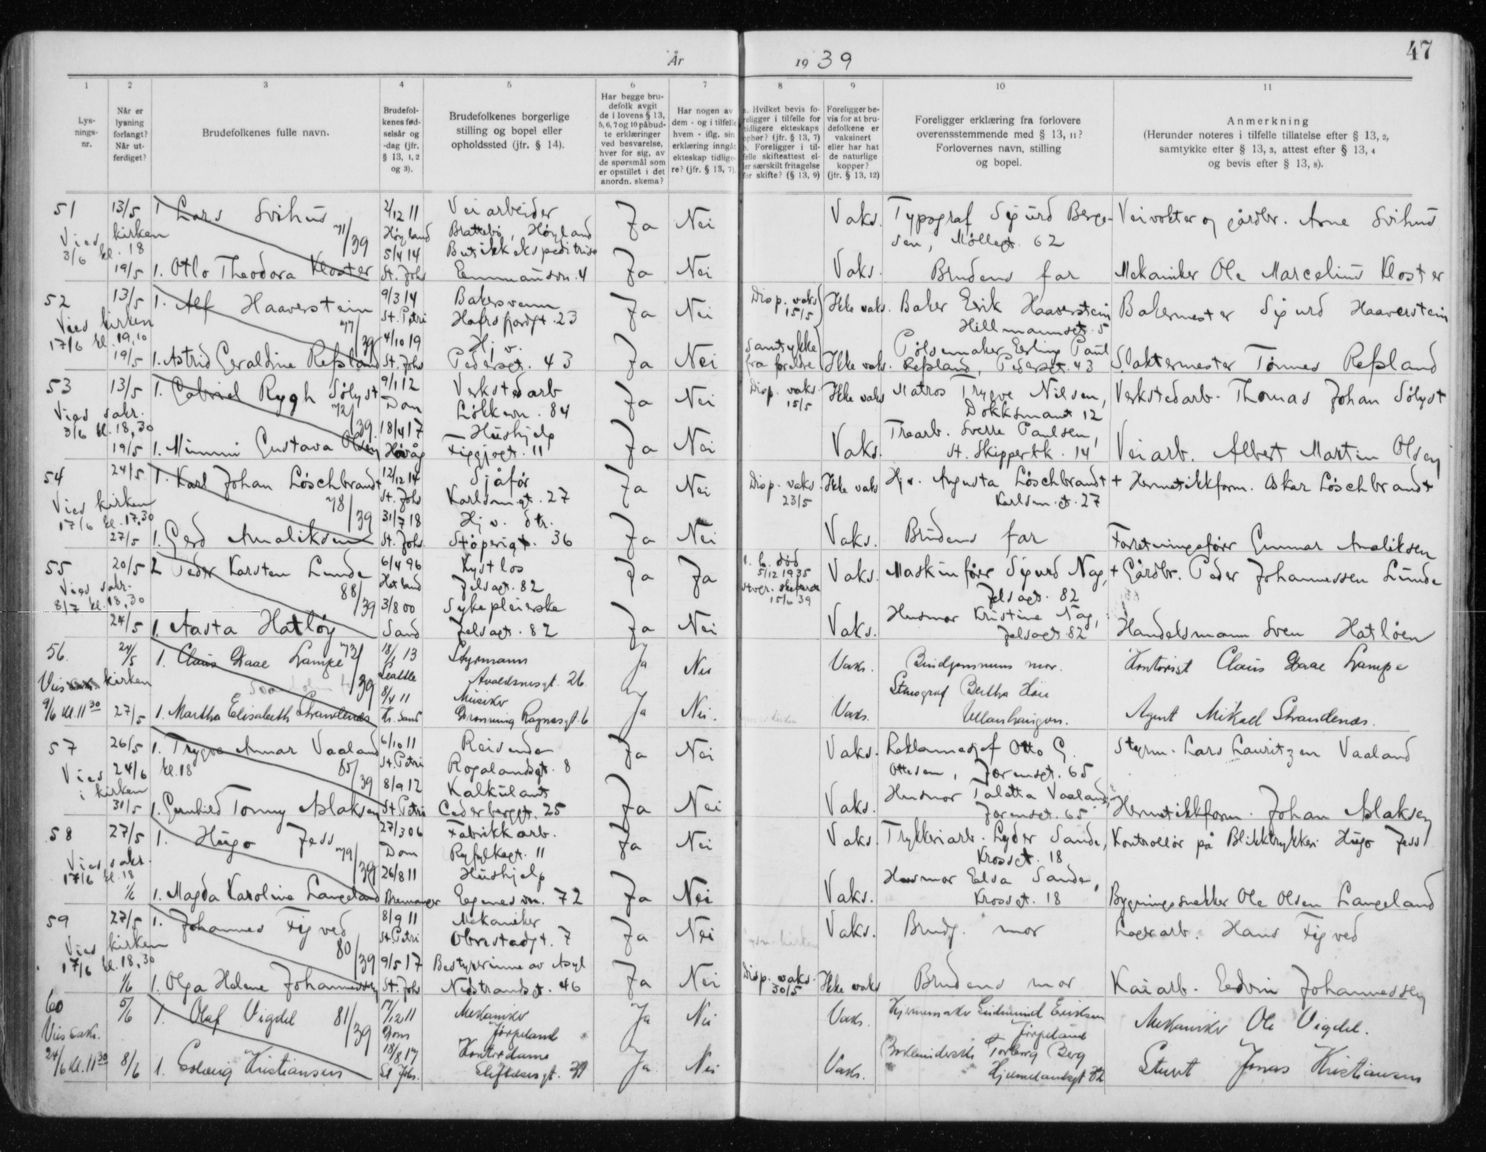 År 1939
47
1 2 3 4 5 6 7 8 9 10 11
Lys-
nings-
nr.
Når er
lysning
forlangt?
Når ut-
ferdiget?
Brudefolkenes fulle navn.
Brudefol-
kenes fød-
selsår og
-dag (jfr.
§ 13, 1, 2
og 3).
Brudefolkenes borgerlige
stilling og bopel eller
opholdssted (jfr. § 14).
Har begge bru-
defolk avgitt
de i lovens § 13,
5, 6, 7 og 10 påbud-
te erklæringer
ved besvarelse,
hver for sig, av
de spørsmål som
er opstillet i det
anordn. skema?
Har nogen av
dem - og i tilfelle
hvem - iflg. sin
erklæring inngått
ekteskap tidlige-
re? (jfr. § 13, 7).
a. Hvilket bevis fo-
religger i tilfelle for
tidligere ekteskaps
ophør? (jfr. § 13, 7)
b. Foreligger i til-
felle skifteattest el-
ler særskilt fritagelse
for skifte? (§ 13, 9)
Foreligger be-
vis for at bru-
defolkene er
vaksinert
eller har hatt
de naturlige
kopper?
(jfr. § 13, 12)
Foreligger erklæring fra forlovere
overensstemmende med § 13, 11?
Forlovernes navn, stilling
og bopel.
Anmerkning
(Herunder noteres i tilfelle tillatelse efter § 13, 2,
samtykke efter § 13, 3, attest efter § 13, 4
og bevis efter § 13, 8).
51 13/5 1. Lars Svihus 2/12 11 Veiarbeider Ja Nei Vaks. Typograf Sigurd Berge- Veivokter og gårdbr. Arne Svihus
Vies kirken 71/39 Høyland Brattebø, Høyland sen, Møllegt. 62
3/6 kl. 18 5/4 14 Butikkekspeditrise
19/5 1. Otlo Theodora Kloster St. Johs Emmausvn. 4 Ja Nei Vaks. Brudens far Mekaniker Ole Marcelius Kloster
52 13/5 1. Alf Haaverstein 9/3 14 Bakersvenn Ja Nei Disp. vaks. 15/5 Ikke vaks. Baker Erik Haaverstein Bakermester Sigurd Haaverstein
Vies kirken 77/39 St. Petri Hafrsfjordgt. 23 Hillmannsgt. 5
17/6 kl. 19,10 4/10 19 Hjv. Samtykke Pølsemaker Erling Paul
19/5 1. Astrid Geraldine Refsland St. Johs Pedersgt. 43 Ja Nei fra foreldre Ikke vaks. Refsland, Pedersgt. 43 Slaktermester Tønnes Refsland
53 13/5 1. Gabriel Rygh Sølyst 9/1 12 Verkstedarb Ja Nei Disp. vaks. 15/5 Ikke vaks Matros Trygve Nilsen, Verkstedarb. Thomas Johan Sølyst
Vies sakr. 72/39 Dom Løkkevn. 84 Dokksmant 12
3/6 kl. 18,30 18/4 17 Hushjelp Trearb. Sverre Paulsen,
19/5 1. Mimmi Gustava Olsen Håvåg Figgjogt. 11 Ja Nei Vaks. st. Skipperbk. 14 Veiarb. Albert Martin Olsen
54 24/5 1. Karl Johan Løschbrandt 12/12 14 Sjåfør Ja Nei Disp. vaks. 23/5 Ikke vaks Hjv. Augusta Løschbrandt + Hermetikkform. Oskar Løschbrandt
Vies kirken 78/39 St. Johs Karlsmgt. 27 Karlsm.gt. 27
17/6 kl. 17,30 31/7 18 Hjv. dtr.
27/5 1. Gerd Amaliksen St. Johs. Støperigt. 36 Ja Nei Vaks. Brudens far Forretningsfører Gunnar Amaliksen
55 20/5 2. Peder Karsten Lunde 6/4 96 Kystlos Ja Ja 1. b. død 5/12 1935 Vaks. Maskinfører Sigurd Nag, + Gårdbr. Peder Johannessen Lunde
Vies sakr. 88/39 Jelsagt. 82 15/6 39 Jelsagt. 82
8/7 kl. 18,30 3/8 00 Sykepleierske Husmor Kristine Nag,
24/5 1. Aasta Hatløy Sand Jelsagt. 82 Ja Nei Vaks. Jelsagt 82 Handelsmann Sven Hatløen
56. 24/5 1. Claus Daae Lampe 73/39 18/ 13 Styrmann Ja Nei Vaks. Brudgommens mor. Kontorist Claus Daae Lampe
Vies kirken Seattle Avaldsnesgt. 26.
9/6 kl. 11 30 8/4 11 Musiker Stenograf Bertha Høie
27/5 1. Martha Elisabeth Strandenæs Kr. Sand Dronning Ragnasgt. 6 Ja Nei. Vaks. Ullanhaugvn. Agent Mikael Strandenæs.
57 26/5 1. Trygve Annar Vaaland 6/10 11 Reisende Ja Nei Vaks. Reklamesjef Otto G. Styrm. Lars Lauritzen Vaaland
Vies 24/6 kl. 18 85/39 St. Petri Rogalandsgt. 8 Ottesen, Jærensgt. 65
i kirken 8/9 12 Kalkulant Husmor Valaland,
31/5 1. Gunhild Tommy Aslaksen St. Petri Cederbergsgt. 25 Ja Nei Vaks. Jærensgt. 65 Hermetikkform. Johan Aslaksen
58 27/5 1. Hugo Jess 79/39 27/3 06 Fabrikkarb. Ja Nei Vaks. Trykkeriarb. Lyder Sande, Kontrollør på Blikktrykkeri Hugo Jess
Vies sakr. Dom Ryfylkegt. 11 Krossgt. 18
17/6 kl. 18 26/8 11 Hushjelp Husmor Elsa Sande,
1/6 1. Magda Karoline Langeland Bremanger Egenesvn. 72 Ja Nei Vaks. Krossgt. 18 Bygningssnekker Ole Olsen Langeland
59 27/5 1. Johannes Figved 8/9 11 Mekaniker Ja Nei Vaks. Brudg. mor Lagerarb. Hans Figved
Vies kirken 80/39 St. Petri Obrestadgt. 7
17/6 kl. 18,30 9/5 17 Bestyrerinne av Asyl
1/6 1. Olga Helene Johannessen St. Johs Nedstrandsgt. 46 Ja Nei Disp. vaks. 30/5 Ikke vaks Brudens mor Kaiarb. Edvin Johannessen
60 5/6 1. Olaf Vigdel 81/39 17/12 11 Mekaniker Ja Nei Vaks. Gudmund Eriksen Mekaniker Ole Vigdel.
Vies sakr. Dom Jørpeland Jørpeland
24/6 kl. 11 30 18/8 17 Kontordame Torborg Berg
8/6 1. Solveig Kristiansen St. Johs. Ja Nei Vaks. Hjelmelandsgt 82 Stuert Jonas Kristiansen